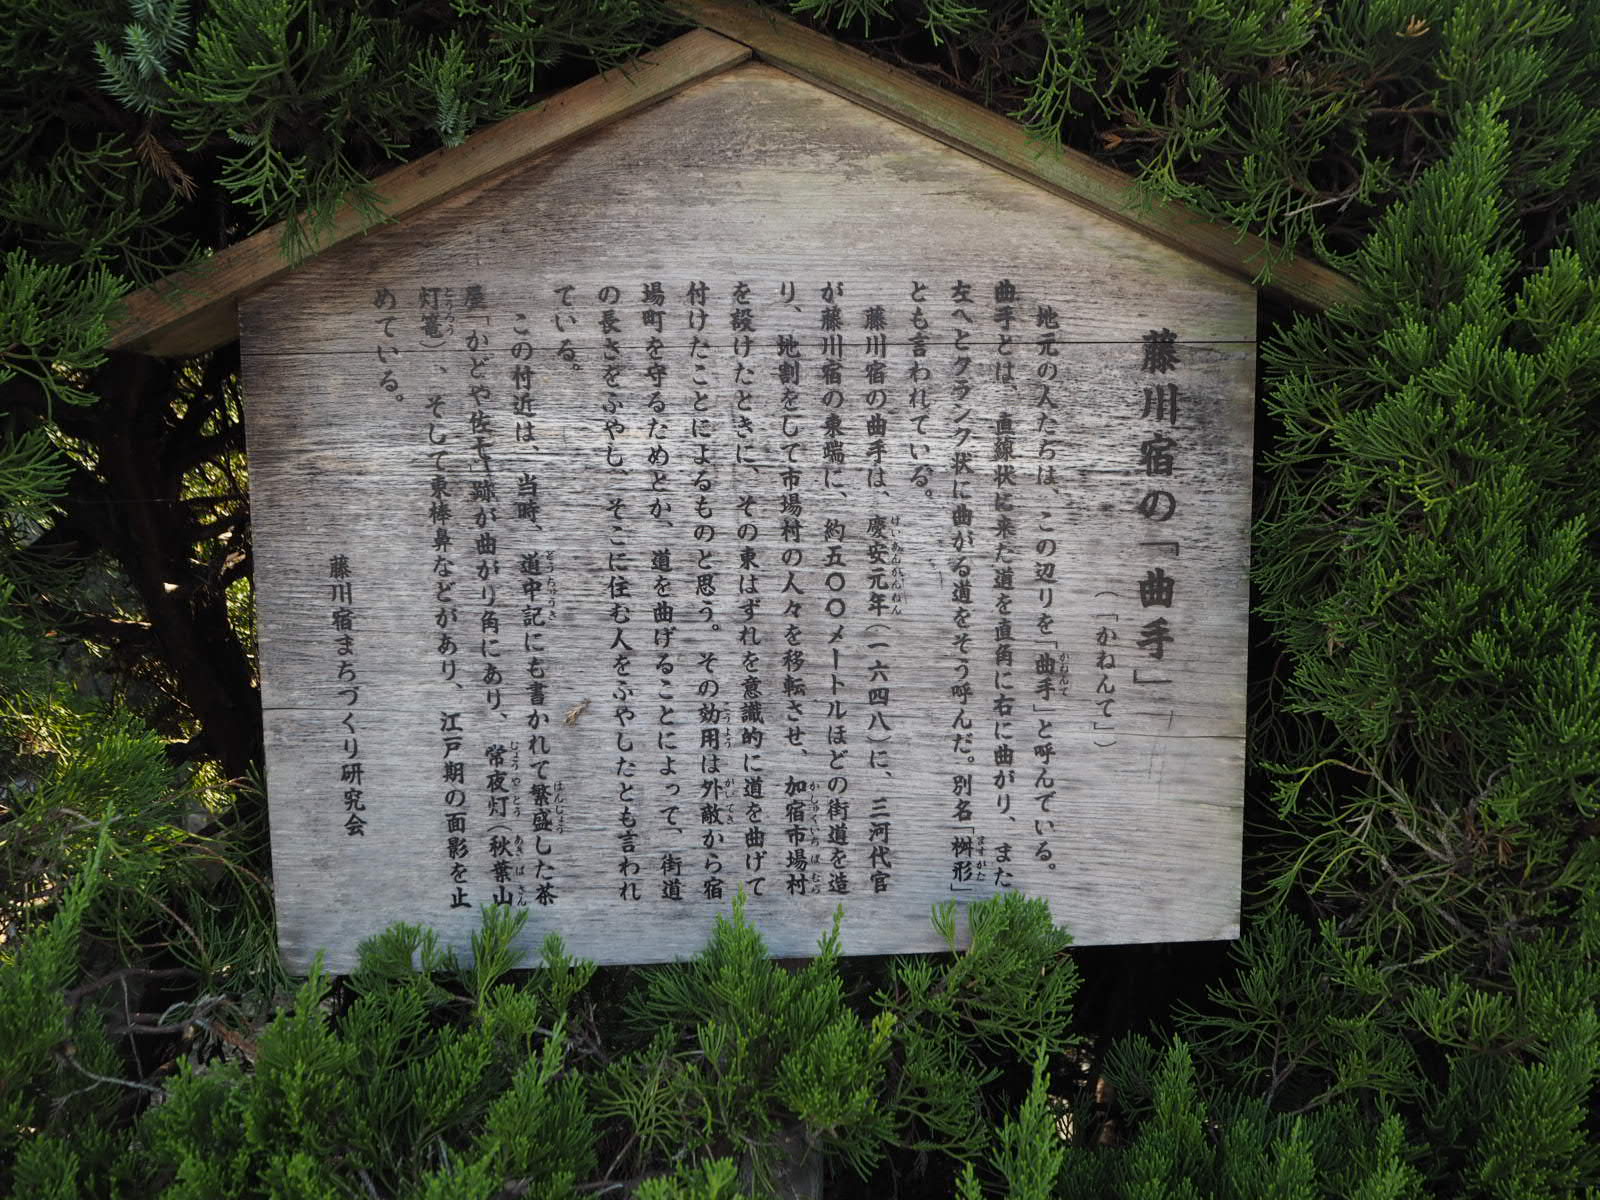 藤川宿の「曲手」
（「かねんて」）
地元の人たちは、この辺りを「曲手」と呼んでいる。
曲手とは、直線状に来た道を直角に右に曲がり、また
左へとクランク状に曲がる道をそう呼んだ。別名「桝形」
とも言われている。
藤川宿の曲手は、慶安元年（一六四八）に、三河代官
が藤川宿の東端に、約五〇〇メートルほどの街道を造
り、地割をして市場村の人々を移転させ、加宿市場村
を設けたときに、その東はずれを意識的に道を曲げて
付けたことによるものと思う。その効用は外敵から宿
場町を守るためとか、道を曲げることによって、街道
の長さをふやし、そこに住む人をふやしたとも言われ
ている。
この付近は、当時、道中記にも書かれて繁盛した茶
屋「かどや佐七」跡が曲がり角にあり、常夜灯（秋葉山
灯篭）、そして東棒鼻などがあり、江戸期の面影を止
めている。
藤川宿まちづくり研究会